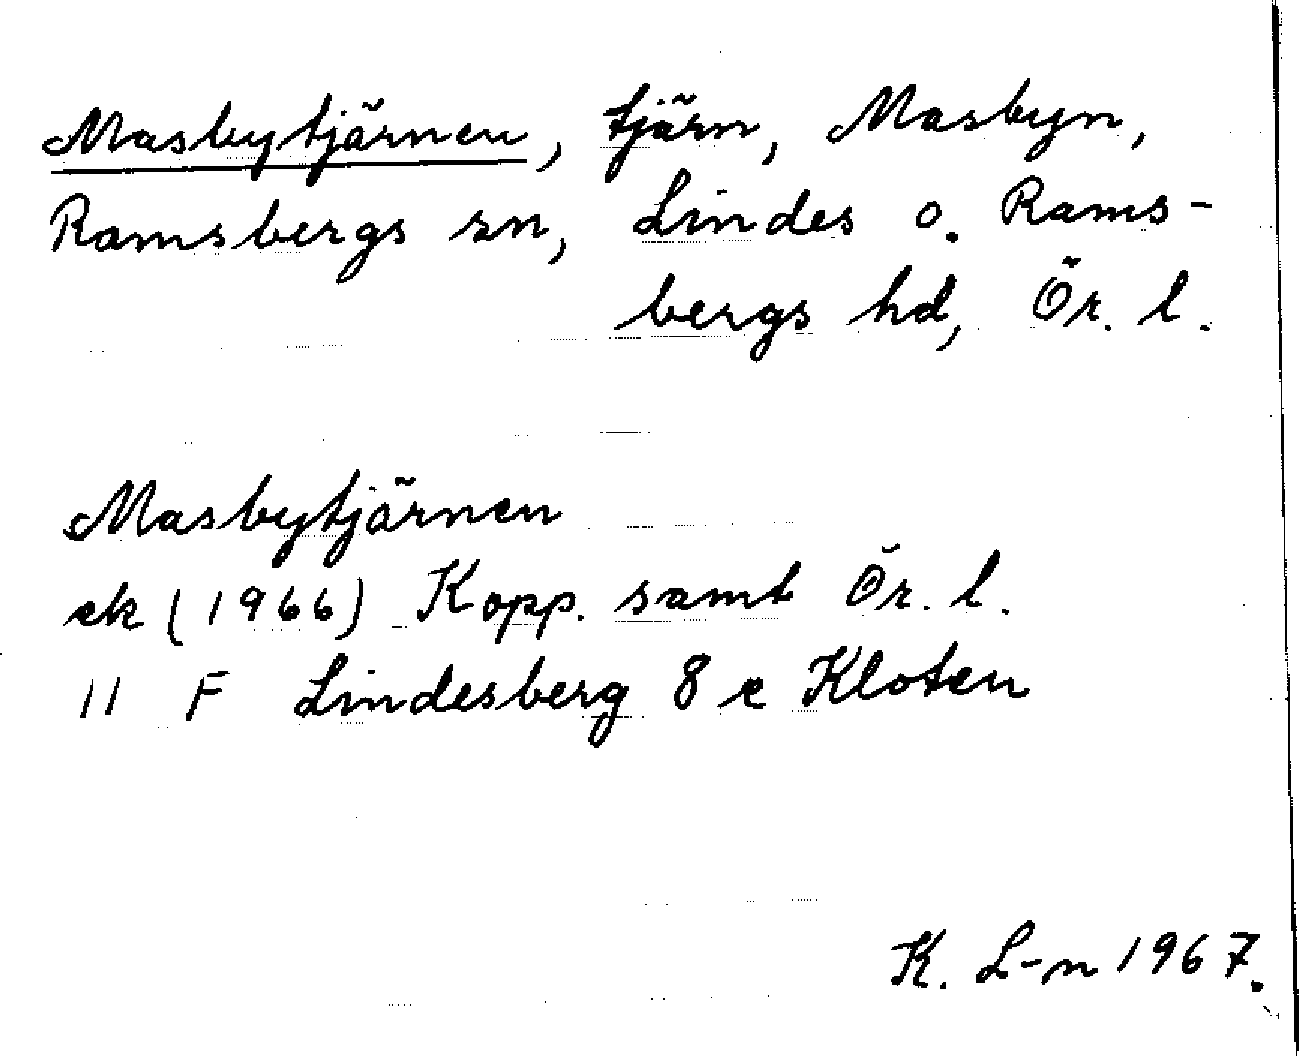 Masbytjärnen, tjärn, Masbyn,
Ramsbergs sn, Lindes o. Rams-
bergs hd, Ör. l.
Masbytjärnen
ek (1966) Kopp. samt Ör. l.
11 F Lindesberg 8 e Kloten
K. L-n 1967.